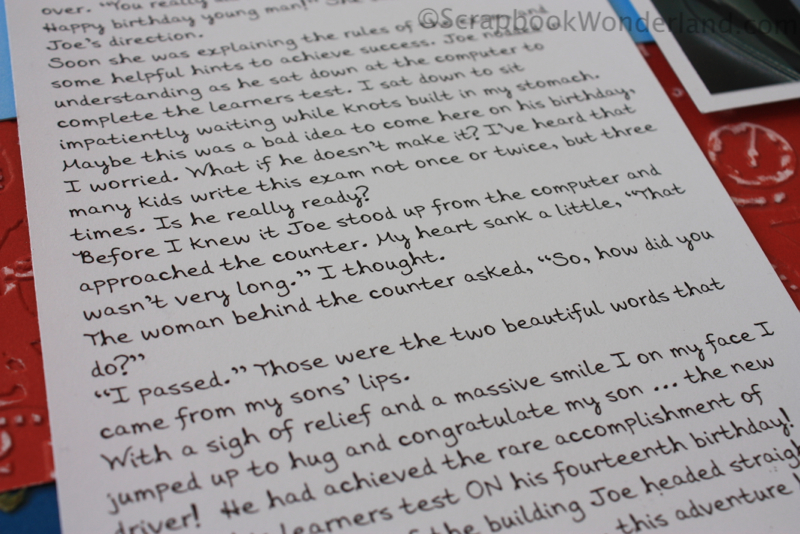 over. "You really
Happy birthday young man!" She
©ScrapbookWonderland.com
Joe's direction.
Soon she was explaining the rules of
some helpful hints to achieve success. Joe nodded
understanding as he sat down at the computer to
complete the learners test. I sat down to sit
impatiently waiting while knots built in my stomach.
Maybe this was a bad idea to come here on his birthday,
I worried. What if he doesn't make it? I've heard that
many kids write this exam not once or twice, but three
times. Is he really ready?
Before I knew it Joe stood up from the computer and
approached the counter. My heart sank a little, "That
wasn't very long." I thought.
The woman behind the counter asked, "So, how did you
do?"
"I passed." Those were the two beautiful words that
came from my sons' lips.
With a sigh of relief and a massive smile I on my face I
jumped up to hug and congratulate my son ... the new
driver! He had achieved the rare accomplishment of
learners test ON his fourteenth birthday!
the building Joe headed straight
this adventure